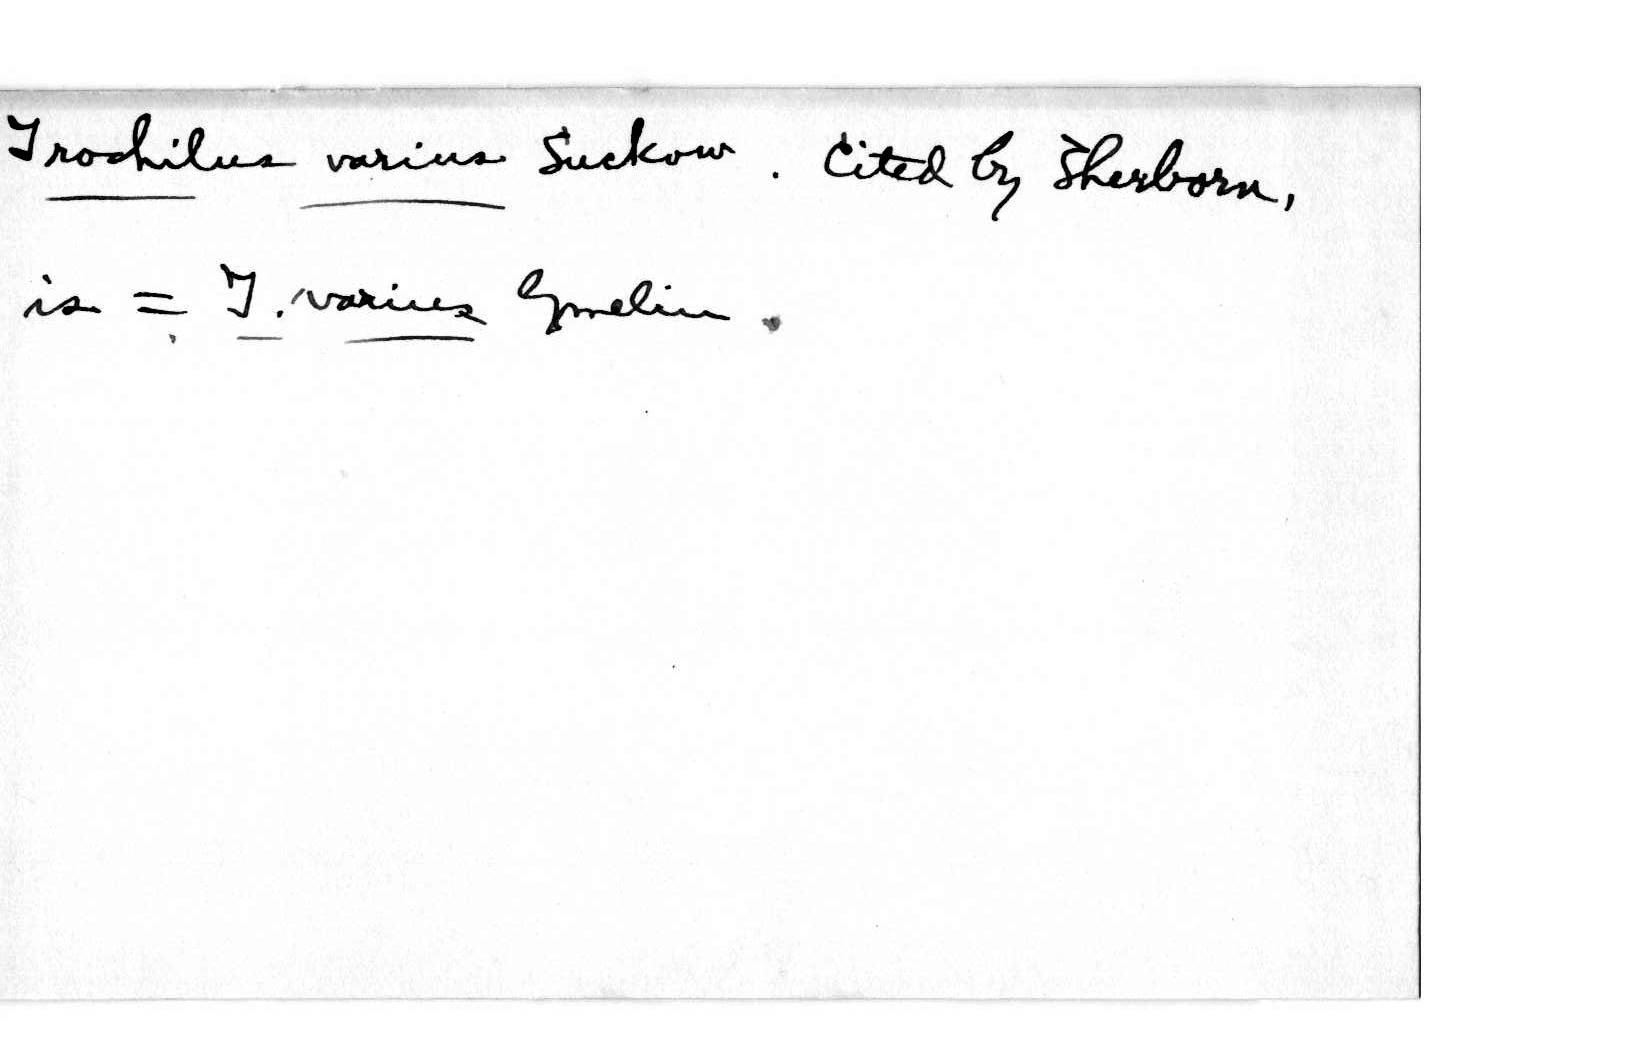 Trochilus varius Suckow. Cited by Sherborn,
is = T. varius Gmelin.